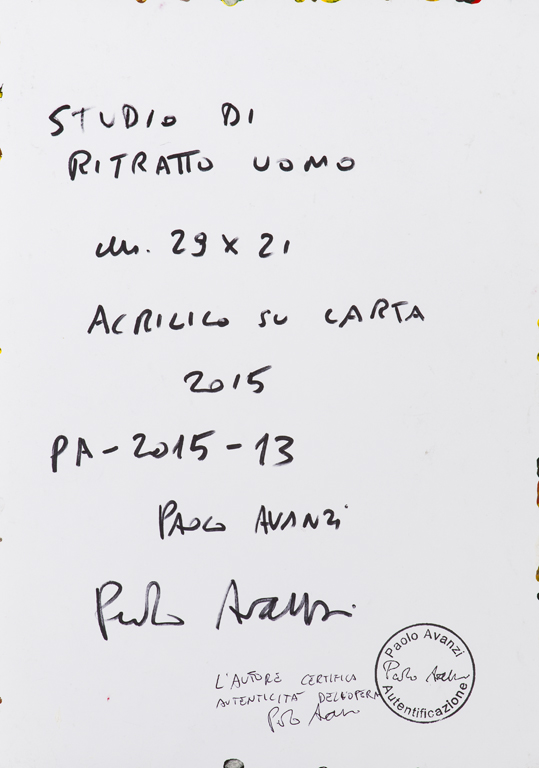 STUDIO DI
RITRATTO UOMO
cm. 29 x 21
ACRILICO SU CARTA
2015
PA-2015-13
PAOLO AVANZI
Paolo Avanzi
L'AUTORE CERTIFICA
AUTENTICITÀ DELL'OPERA
Paolo Avanzi
Paolo Avanzi
Paolo Avanzi
Autentificazione